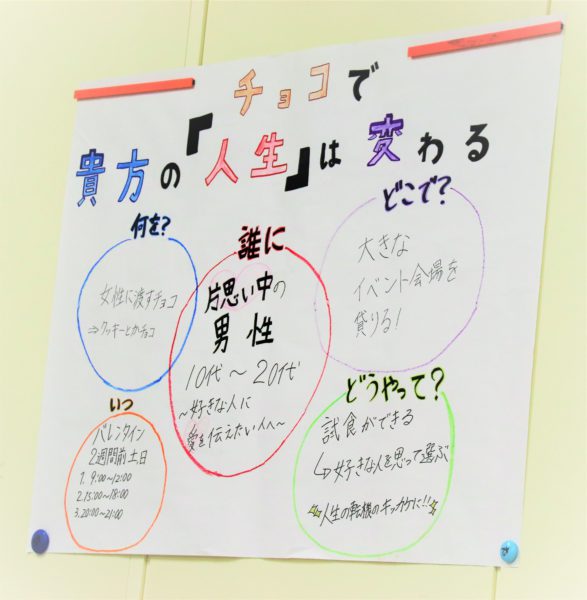 チョコで
貴方の『人生』は変わる
何を?
女性に渡すチョコ
⇒クッキーとかチョコ
誰に
片思い中の
男性
10代～20代
～好きな人に
愛を伝えたい人へ～
どこで?
大きな
イベント会場を
貸りる!
いつ
バレンタイン
2週間前土日
1. 9:00～12:00
2. 15:00～18:00
3. 20:00～21:00
どうやって?
試食ができる
↳好きな人を思って選ぶ
人生の転機のキッカケに!!